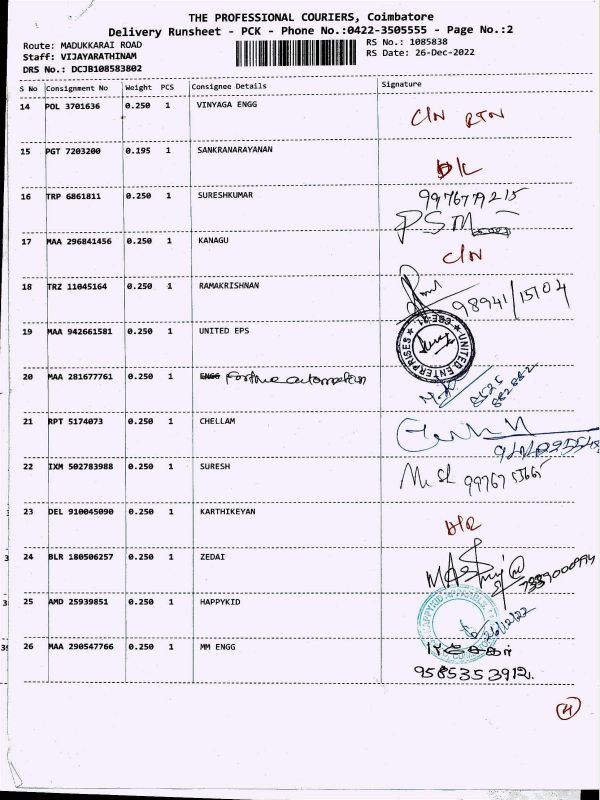 THE PROFESSIONAL COURIERS, Coimbatore
Delivery Runsheet - PCK - Phone No.:0422-3505555 - Page No.:2
Route: MADUKKARAI ROAD RS No.: 1085838
Staff: VIJAYARATHINAM RS Date: 26-Dec-2022
DRS No.: DCJB108583802
S No Consignment No Weight PCS Consignee Details Signature
14 POL 3701636 0.250 1 VINYAGA ENGG C/N RTN
15 PGT 7203200 0.195 1 SANKRANARAYANAN D/L
16 TRP 6861811 0.250 1 SURESHKUMAR 9976779215
P.S.M
17 MAA 296841456 0.250 1 KANAGU C/N
18 TRZ 11045164 0.250 1 RAMAKRISHNAN 98941/15104
19 MAA 942661581 0.250 1 UNITED EPS UNITED ENTERPRISES
20 MAA 281677761 0.250 1 ENGG Fortune automation 8525
882882
21 RPT 5174073 0.250 1 CHELLAM
22 IXM 502783988 0.250 1 SURESH
23 DEL 910045090 0.250 1 KARTHIKEYAN
24 BLR 180506257 0.250 1 ZEDAI
25 AMD 25939851 0.250 1 HAPPYKID 26/12/22
26 MAA 290547766 0.250 1 MM ENGG
9585353912
4